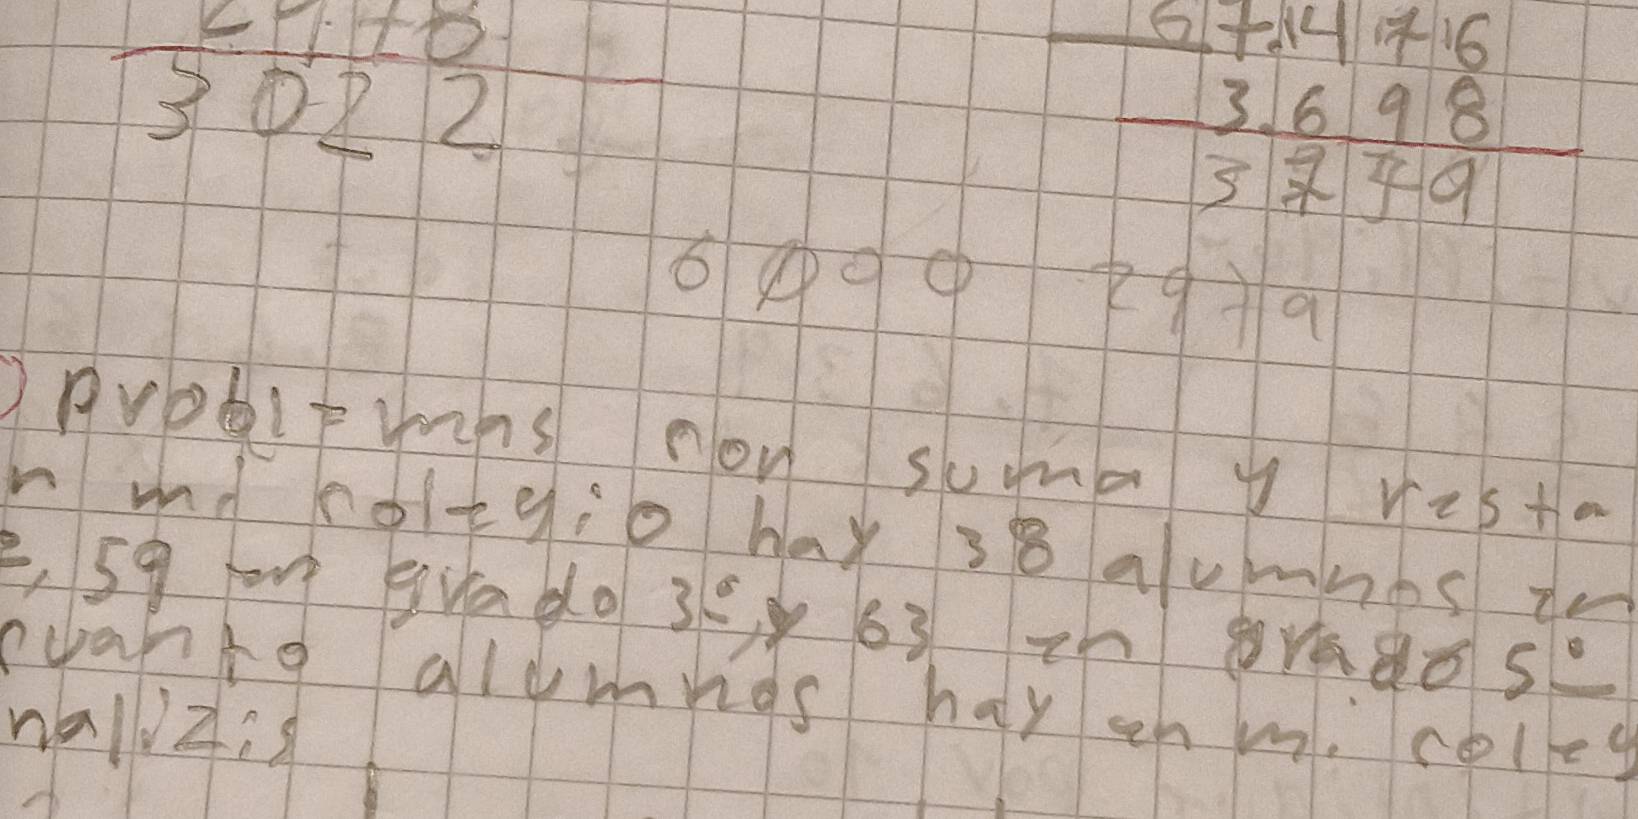 3022
3.698
3779
6000 2979
problemas con suma y resta
n mi colegio hay 38 alumnos en
59 en grado 3º, y 63 en grado 5º
cuanto alumnos hay en mi coleg
nalizis